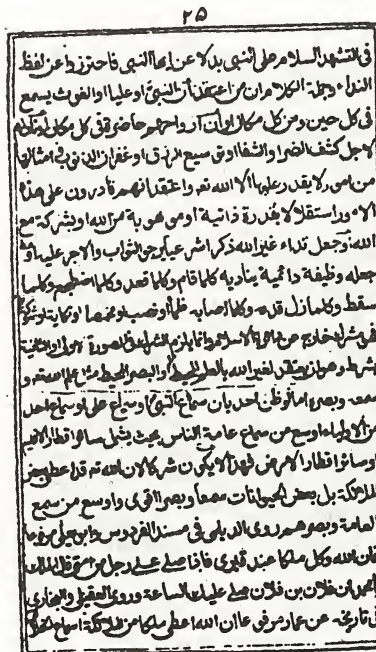 ٢٥
فى التشهد السلام على النبى بدلا عن ايها النبى فاحترزوا عن لفظ
النداء وجملة الكلام ان من اعتقد ان النبى او عليا او الغوث يسمع
فى كل حين ومن كل مكان او ان ارواحهم حاضرة فى كل مكان
لاجل كشف الضر او الشفا او توسيع الرزق او غفران الذنوب امثالها
من امور لا يقدر عليها الا الله تعم واعتقد انهم قادرون على هذه
الامور استقلالا بقدرة ذاتية او موهوبة من الله او بشركة مع
الله وجعل نداء غير الله ذكرا شرعيا يرجو الثواب والاجر عليه او
جعله وظيفة دائمية يناديه كلما قام وكلما قعد وكلما اضطجع وكلما
سقط وكلما زل قدمه وكلما اصابه ظمأ او نصب او مخمصة
فهو مشرك خارج من دائرة الاسلام الصورة الثانية
شرط وهو ان يعتقد لغير الله بالعلم المحيط او البصر المحيط مثل علم الله تعم و
سمعه وبصره اما لو ظن احد بان سماع النبى او سماع على او سماع احد
من الاولياء اوسع من سماع عامة الناس بحيث يشمل سائر اقطار
او سائر اقطار الارض فهذا لا يكون شركا لان الله تعم قد اعطى بعض
الملائكة بل بعض الحيوانات سمعا وبصرا اقوى واوسع من سمع
العامة وبصرهم روى الديلمى فى مسند الفردوس
فان الله وكل ملكا عند قبرى فاذا صلى على رجل من امتى قال الملك
يا محمد ان فلان بن فلان صلى عليك الساعة وروى العقيلى والبخارى
فى تاريخه عن عمار مرفوعا ان الله اعطى ملكا من الملائكة اسماع الخلائق